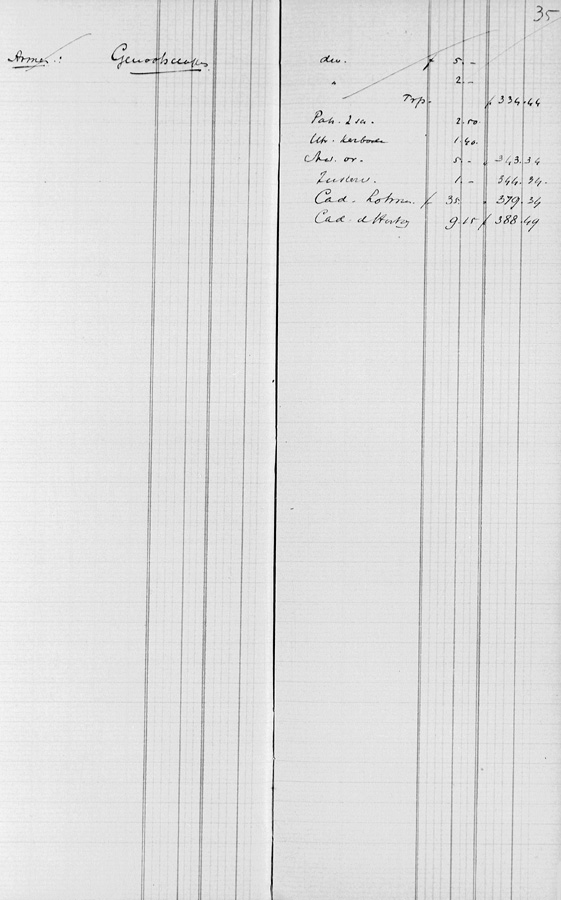 35
Armen: Genootschap
div. f 5.-
" 2.-
Trp. f 334.44
Pak. 2.50
Uk. Kerbode 1.40
or. 5.- " 343.34
1.- 344.34.
Cad. Lohman f 35 " 379.34
Cad. d Hertog 9.15 f 388.49